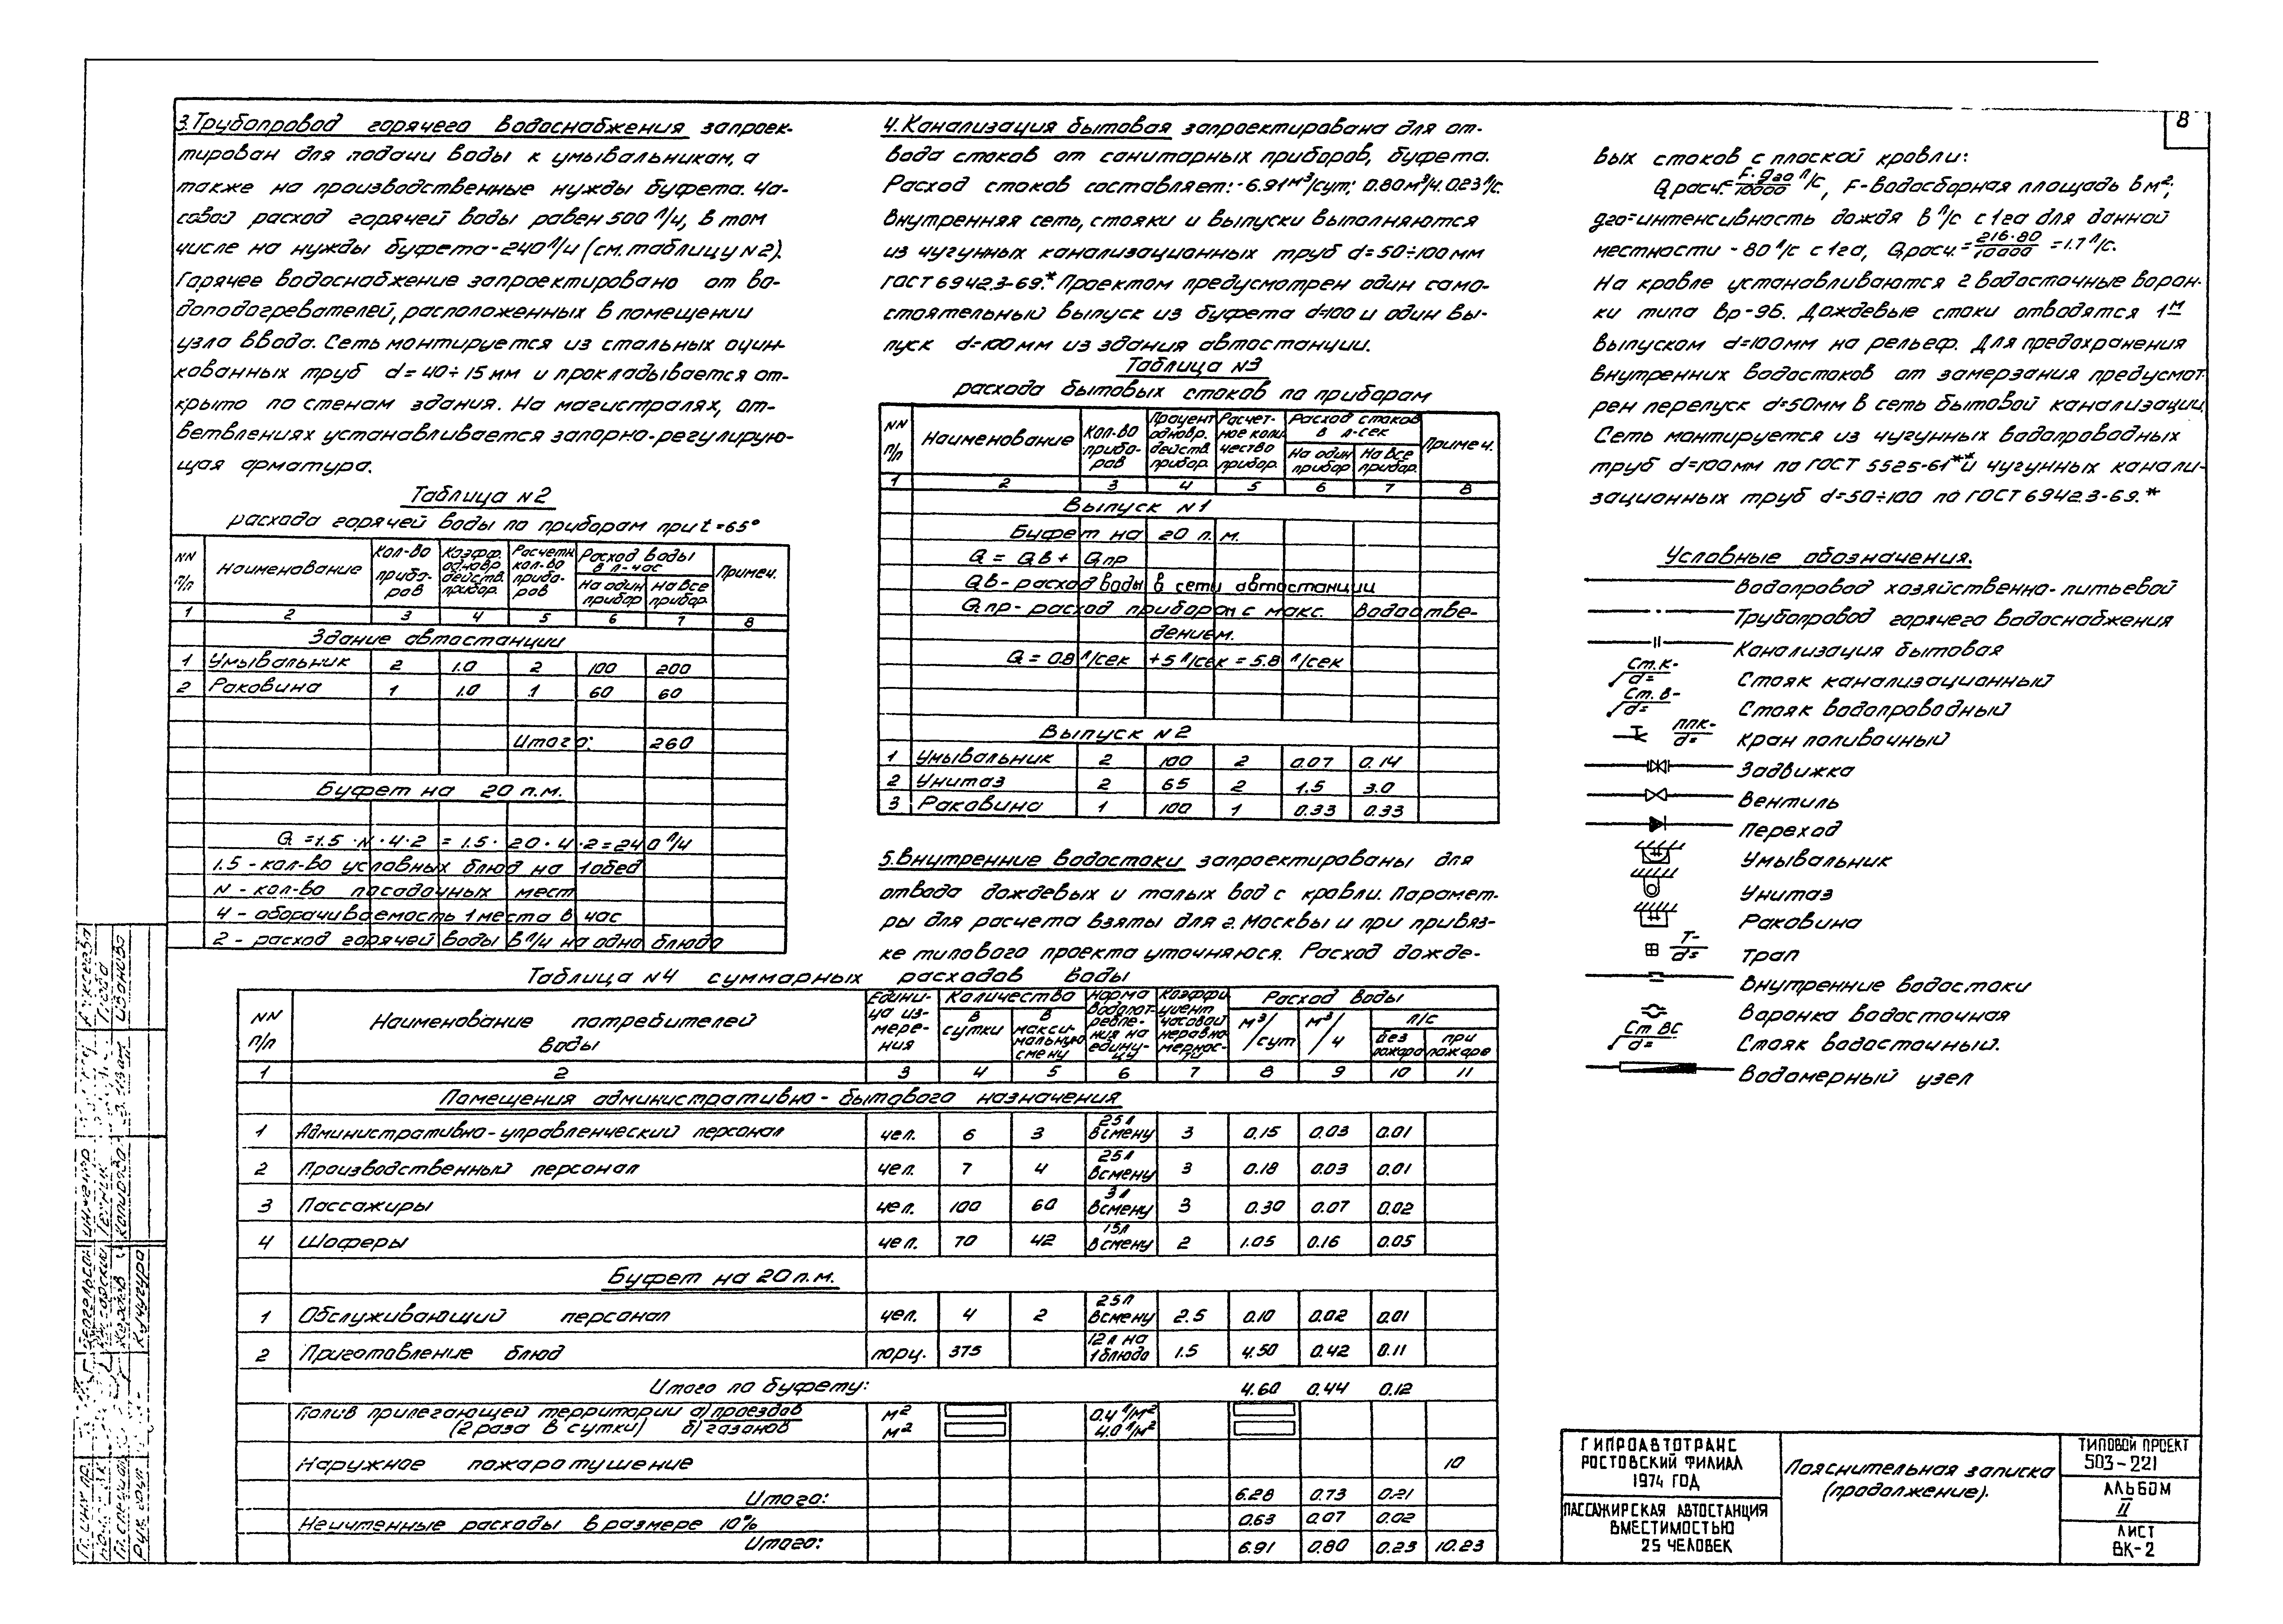 8
3. Трубопровод горячего водоснабжения запроек-
тирован для подачи воды к умывальникам, а
также на производственные нужды буфета. Ча-
совой расход горячей воды равен 500 л/ч, в том
числе на нужды буфета - 240 л/ч (см. таблицу N2).
Горячее водоснабжение запроектировано от во-
доподогревателей, расположенных в помещении
узла ввода. Сеть монтируется из стальных оцин-
кованных труб d = 40÷15 мм и прокладывается от-
крыто по стенам здания. На магистралях, от-
ветвлениях устанавливается запорно-регулирую-
щая арматура.
Таблица N2
расхода горячей воды по приборам при t = 65°
NN п/п | Наименование | Кол-во приборов | Коэфф. одновр. действ. прибор. | Расчетн. кол-во приборов | Расход воды в л-час | Примеч.
На один прибор | На все прибор.
1 2 3 4 5 6 7 8
Здание автостанции
1 Умывальник 2 1.0 2 100 200
2 Раковина 1 1.0 1 60 60
Итого: 260
Буфет на 20 п.м.
Q = 1.5 · N · 4 · 2 = 1.5 · 20 · 4 · 2 = 240 л/ч
1.5 - кол-во условных блюд на 1 обед
N - кол-во посадочных мест
4 - оборачиваемость 1 места в час
2 - расход горячей воды в л/ч на одно блюдо
4. Канализация бытовая запроектирована для от-
вода стоков от санитарных приборов, буфета.
Расход стоков составляет: - 6.91 м³/сут; 0.80 м³/ч. 0.23 л/с.
Внутренняя сеть, стояки и выпуски выполняются
из чугунных канализационных труб d = 50÷100 мм
ГОСТ 6942.3-69.* Проектом предусмотрен один само-
стоятельный выпуск из буфета d=100 и один вы-
пуск d=100 мм из здания автостанции.
Таблица N3
расхода бытовых стоков по приборам
NN п/п | Наименование | Кол-во приборов | Процент одновр. действ. прибор. | Расчетное количество прибор. | Расход стоков в л-сек | Примеч.
На один прибор | На все прибор.
1 2 3 4 5 6 7 8
Выпуск N1
Буфет на 20 п.м.
Q = Qв + Qпр
Qв - расход воды в сети автостанции
Qпр - расход прибором с макс. водоотве-
дением.
Q = 0.8 л/сек + 5 л/сек = 5.8 л/сек
Выпуск N2
1 Умывальник 2 100 2 0.07 0.14
2 Унитаз 2 65 2 1.5 3.0
3 Раковина 1 100 1 0.33 0.33
5. Внутренние водостоки запроектированы для
отвода дождевых и талых вод с кровли. Парамет-
ры для расчета взяты для г. Москвы и при привяз-
ке типового проекта уточняюся. Расход дожде-
вых стоков с плоской кровли:
Qрасч. = F·q20/10000 л/с, F - водосборная площадь в м²;
q20 = интенсивность дождя в л/с с 1 га для данной
местности - 80 л/с с 1 га, Qрасч. = 216·80/10000 = 1.7 л/с.
На кровле устанавливаются 2 водосточные ворон-
ки типа Вр-9Б. Дождевые стоки отводятся 1м
выпуском d=100 мм на рельеф. Для предохранения
внутренних водостоков от замерзания предусмот-
рен перепуск d=50 мм в сеть бытовой канализации.
Сеть монтируется из чугунных водопроводных
труб d=100 мм по ГОСТ 5525-61** и чугунных канали-
зационных труб d=50÷100 по ГОСТ 6942.3-69.*
Условные обозначения.
Водопровод хозяйственно-питьевой
Трубопровод горячего водоснабжения
Канализация бытовая
Ст.К- d= Стояк канализационный
Ст.В- d= Стояк водопроводный
ППК- d= Кран поливочный
Задвижка
Вентиль
Переход
Умывальник
Унитаз
Раковина
Т- d= Трап
Внутренние водостоки
Воронка водосточная
Ст ВС d= Стояк водосточный.
Водомерный узел
Таблица N4 суммарных расходов воды
NN п/п | Наименование потребителей воды | Единица измерения | Количество | Норма водопотребления на единицу | Коэффициент часовой неравномерности | Расход воды
в сутки | в максимальную смену | м³/сут | м³/ч | л/с
без пожара | при пожаре
1 2 3 4 5 6 7 8 9 10 11
Помещения административно-бытового назначения
1 Административно-управленческий персонал чел. 6 3 25л в смену 3 0.15 0.03 0.01
2 Производственный персонал чел. 7 4 25л в смену 3 0.18 0.03 0.01
3 Пассажиры чел. 100 60 3л в смену 3 0.30 0.07 0.02
4 Шоферы чел. 70 42 15л в смену 2 1.05 0.16 0.05
Буфет на 20 п.м.
1 Обслуживающий персонал чел. 4 2 25л в смену 2.5 0.10 0.02 0.01
2 Приготовление блюд порц. 375 12л на 1 блюдо 1.5 4.50 0.42 0.11
Итого по буфету: 4.60 0.44 0.12
Полив прилегающей территории а) проездов м² 0.4 л/м²
(2 раза в сутки) б) газонов м² 4.0 л/м²
Наружное пожаротушение 10
Итого: 6.28 0.73 0.21
Неучтенные расходы в размере 10% 0.63 0.07 0.02
Итого: 6.91 0.80 0.23 10.23
ГИПРОАВТОТРАНС
РОСТОВСКИЙ ФИЛИАЛ
1974 ГОД
ПАССАЖИРСКАЯ АВТОСТАНЦИЯ
ВМЕСТИМОСТЬЮ
25 ЧЕЛОВЕК
Пояснительная записка
(продолжение).
ТИПОВОЙ ПРОЕКТ
503-221
АЛЬБОМ
II
ЛИСТ
ВК-2
Кучугура
Иванова